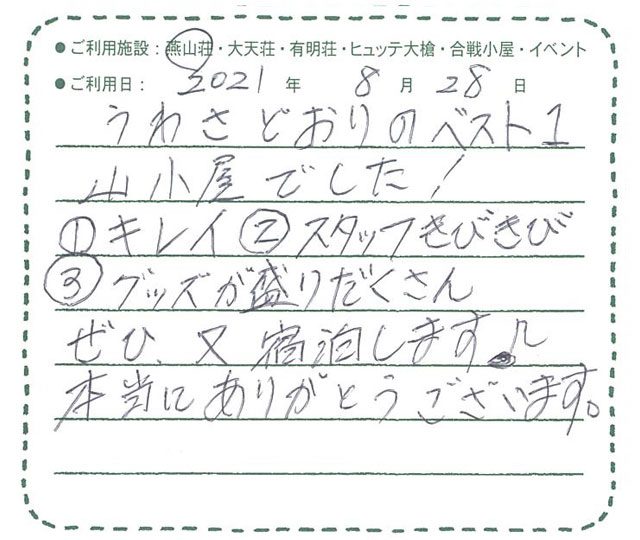 ●ご利用施設：燕山荘・大天荘・有明荘・ヒュッテ大槍・合戦小屋・イベント
●ご利用日： 2021 年 8 月 28 日
うわさどおりのベスト1
山小屋でした！
①キレイ②スタッフきびきび
③グッズが盛りだくさん
ぜひ、又宿泊します♪
本当にありがとうございます。